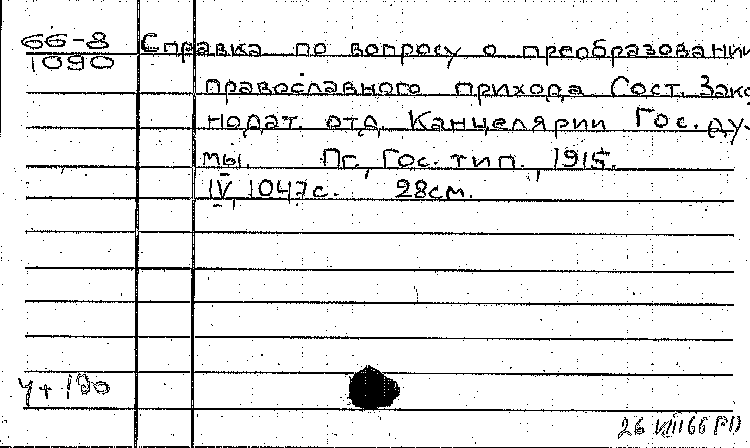 66-8 Справка по вопросу о преобразовании
1090
православного прихода Сост. Зако
нодат. отд. Канцелярии Гос. ду-
мы. Пг., Гос. тип., 1915.
IV, 1047 с. 28 см.
4 + 190
26 VIII 66